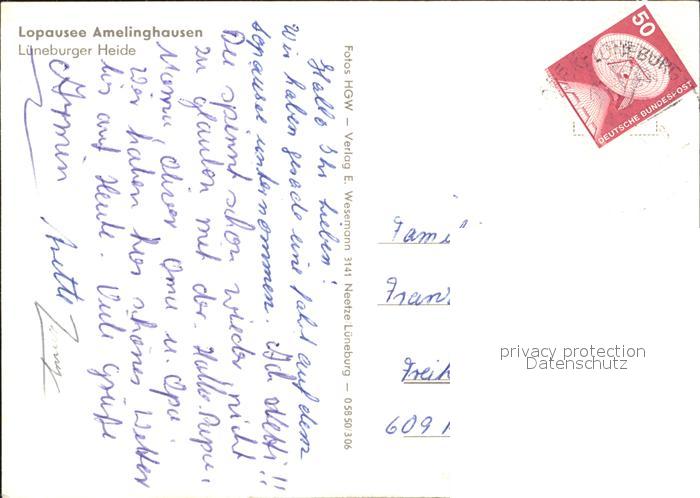 Lopausee Amelinghausen
Lüneburger Heide
Hallo Ihr Lieben!
Wir haben gerade eine Fahrt auf dem
Lopausee unternommen. Ich Netti!!
Du spinnt schon wieder, nicht
zu glauben mit der. Hallo Papu,
Momu Oliver Oma u. Opa.
Wir haben hier schönes Wetter
bis auf Heute. Viele Grüße
Armin
Fotos HGW — Verlag E. Wesemann 3141 Neetze Lüneburg — 05850 306
50
LÜNEBURG
DEUTSCHE BUNDESPOST
Fami
Fran
609
privacy protection
Datenschutz